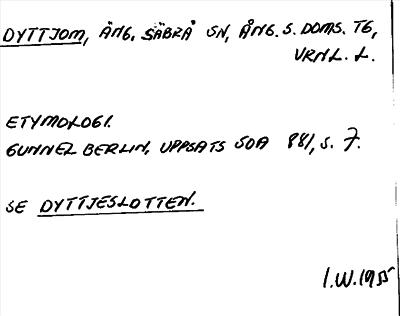 DYTTJOM, ÄNG. SÄBRÅ SN, ÅNG. S. DOMS. TG,
VRNL. L.
ETYMOLOGI.
GUNNEL BERLIN, UPPSATS SOA 881, S. 7.
SE DYTTJESLOTTEN.
I.W. 1955